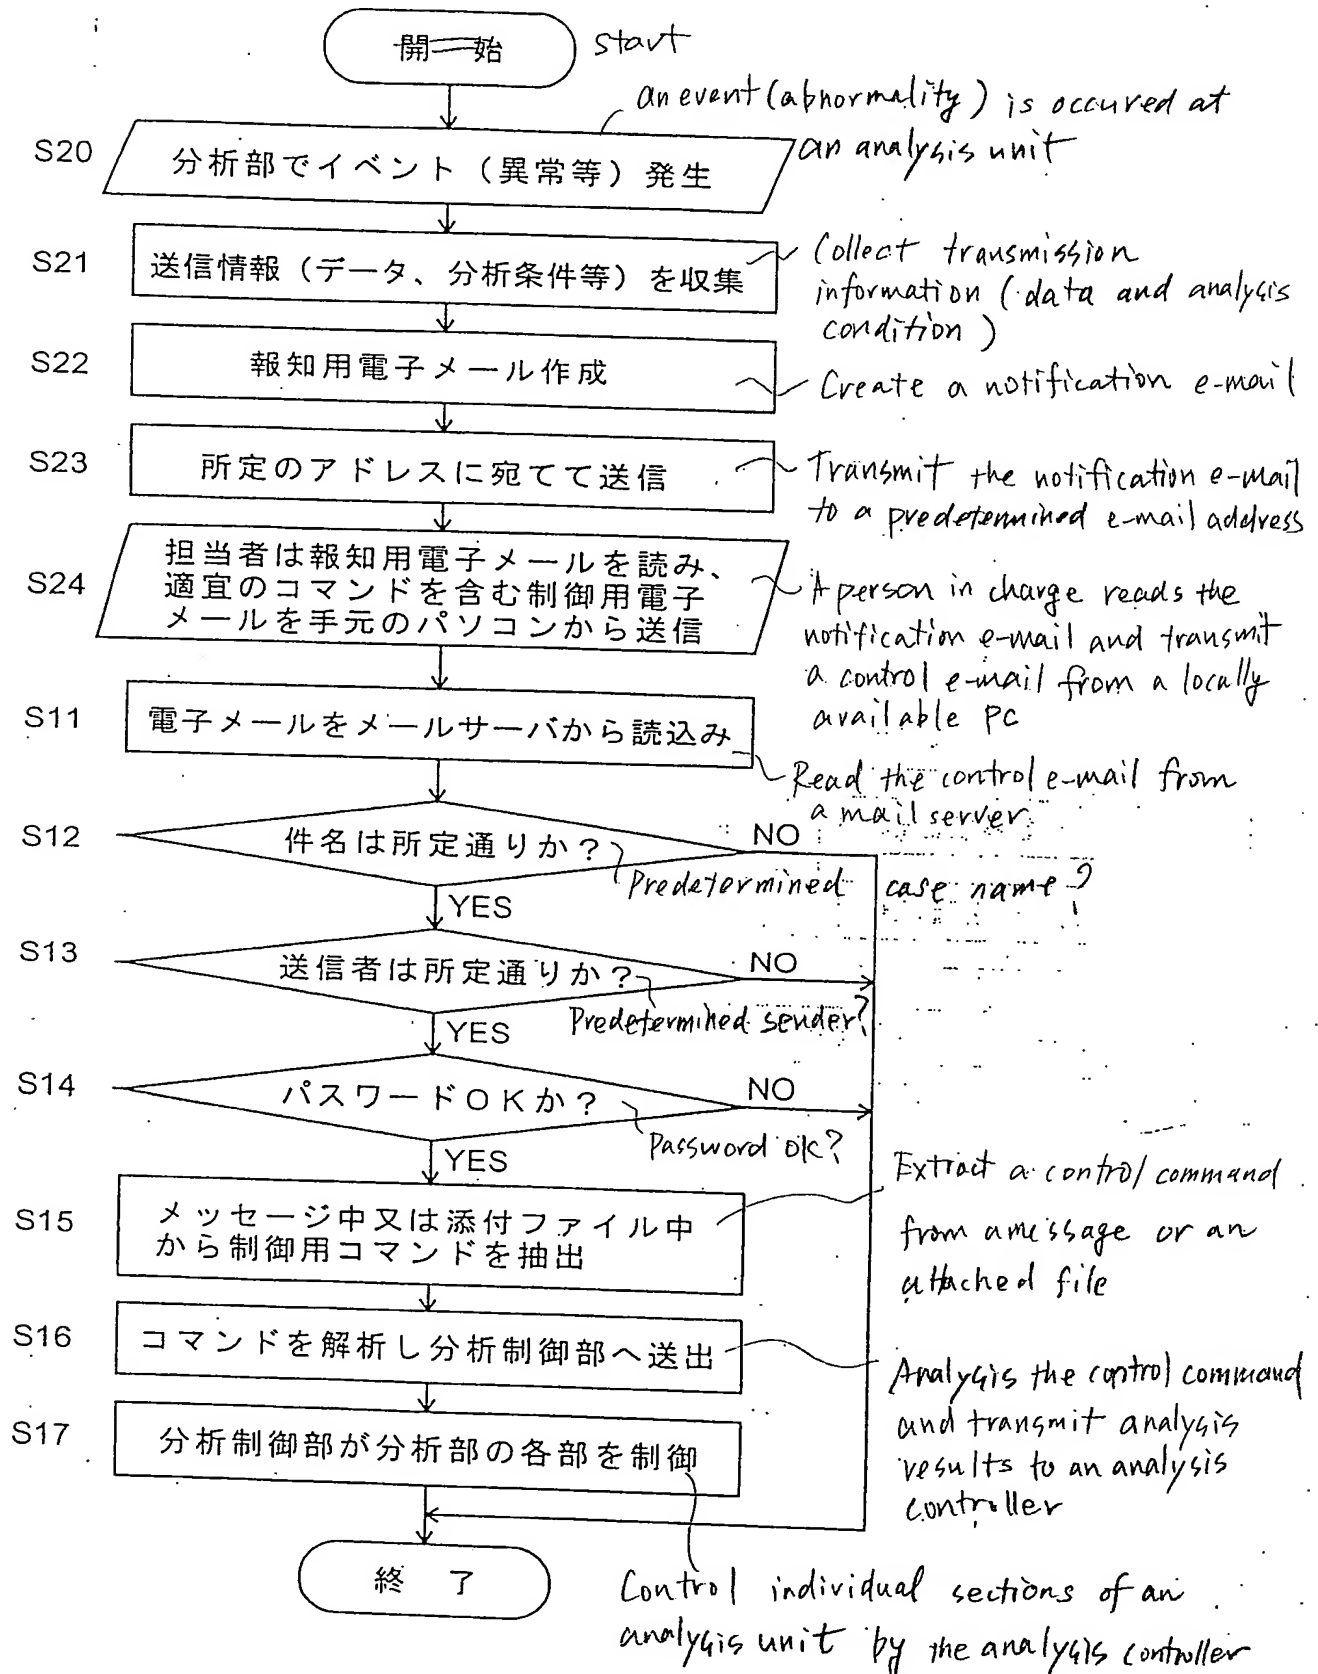 開始 start
an event (abnormality) is occured at
an analysis unit
S20
分析部でイベント（異常等）発生
S21
送信情報（データ、分析条件等）を収集
Collect transmission
information (data and analysis
condition)
S22
報知用電子メール作成
Create a notification e-mail
S23
所定のアドレスに宛てて送信
Transmit the notification e-mail
to a predetermined e-mail address
S24
担当者は報知用電子メールを読み、
適宜のコマンドを含む制御用電子
メールを手元のパソコンから送信
A person in charge reads the
notification e-mail and transmit
a control e-mail from a locally
available PC
S11
電子メールをメールサーバから読込み
Read the control e-mail from
a mail server
S12
件名は所定通りか？
NO
Predetermined case name?
YES
S13
送信者は所定通りか？
NO
Predetermined sender?
YES
S14
パスワードＯＫか？
NO
Password ok?
YES
S15
メッセージ中又は添付ファイル中
から制御用コマンドを抽出
Extract a control command
from a message or an
attached file
S16
コマンドを解析し分析制御部へ送出
Analysis the control command
and transmit analysis
results to an analysis
controller
S17
分析制御部が分析部の各部を制御
終了
Control individual sections of an
analysis unit by the analysis controller